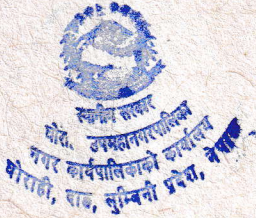 स्थानीय सरकार
घोरा. उपमहानगरपालिका
नगर कार्यपालिकाको कार्यालय
घोराही, दाङ, लुम्बिनी प्रदेश, नेपाल